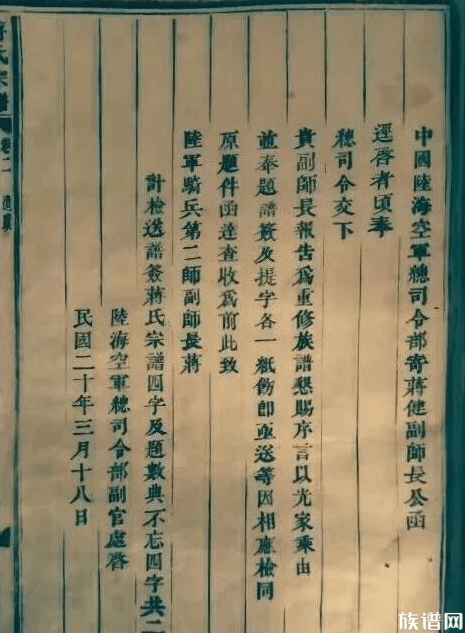 中國陸海空軍總司令部寄蔣健副師長公函
逕啓者頃奉
總司令交下
貴副師長報告爲重修族譜懇賜序言以光家乘由
並奉題譜簽及提字各一紙飭即逕送等因相應檢同
原題件函達查收爲前此致
陸軍騎兵第二師副師長蔣
計檢送譜簽蔣氏宗譜四字及題數典不忘四字共二
陸海空軍總司令部副官處啓
民國二十年三月十八日
蔣氏宗譜
卷二
族谱网